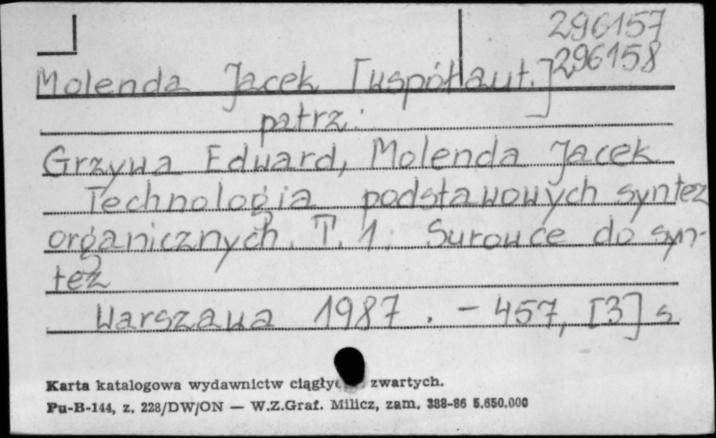 296157
296158
Molenda Jacek [współaut.]
patrz:
Grzywa Edward, Molenda Jacek
Technologia podstawowych syntez
organicznych. T. 1: Surowce do syn-
tez
Warszawa 1987. - 457, [3] s
Karta katalogowa wydawnictw zwartych.
Pu-B-144, z. 228/DW/ON — W.Z.Graf. Milicz, zam. 388-86 5.650.000